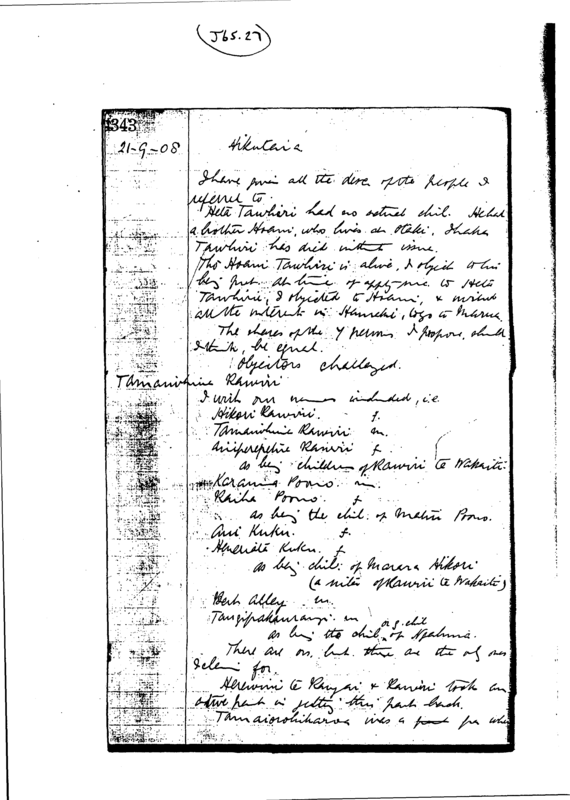 J65.27
343
21-9-08
Hikutaia
I have given all the desc of the people I
referred to.
Heta Tawhiri had no actual chil. He had
a brother Hoani, who lives at Otaki. Ihaka
Tawhiri has died without issue.
Tho' Hoani Tawhiri is alive, I object to his
being put. At time of to Heta
Tawhiri, I objected to Hoani, &
all the interests in to
The shares of the 7 persons I propose, should
I think, be equal.
Objectors challenged.
Tamaiwhine Rawiri
I wish our names included, i.e
Hikori Rawiri. f.
Tamaiwhine Rawiri m.
Rawiri f
as being children of Rawiri te Wakaiti
Karauna Poono. m.
Raiha Poono. f
as being the chil. of Matiu Poono.
Ani Kuku. f.
Henerieta Kuku. f
as being chil: of Marara Hikori
(a sister of Rawiri te Wakaiti)
Bert Alley m.
m
as being the chil. of
There are ors. but these are the only ones
I claim for.
te & Rawiri took an
active part in getting this part back.
was a